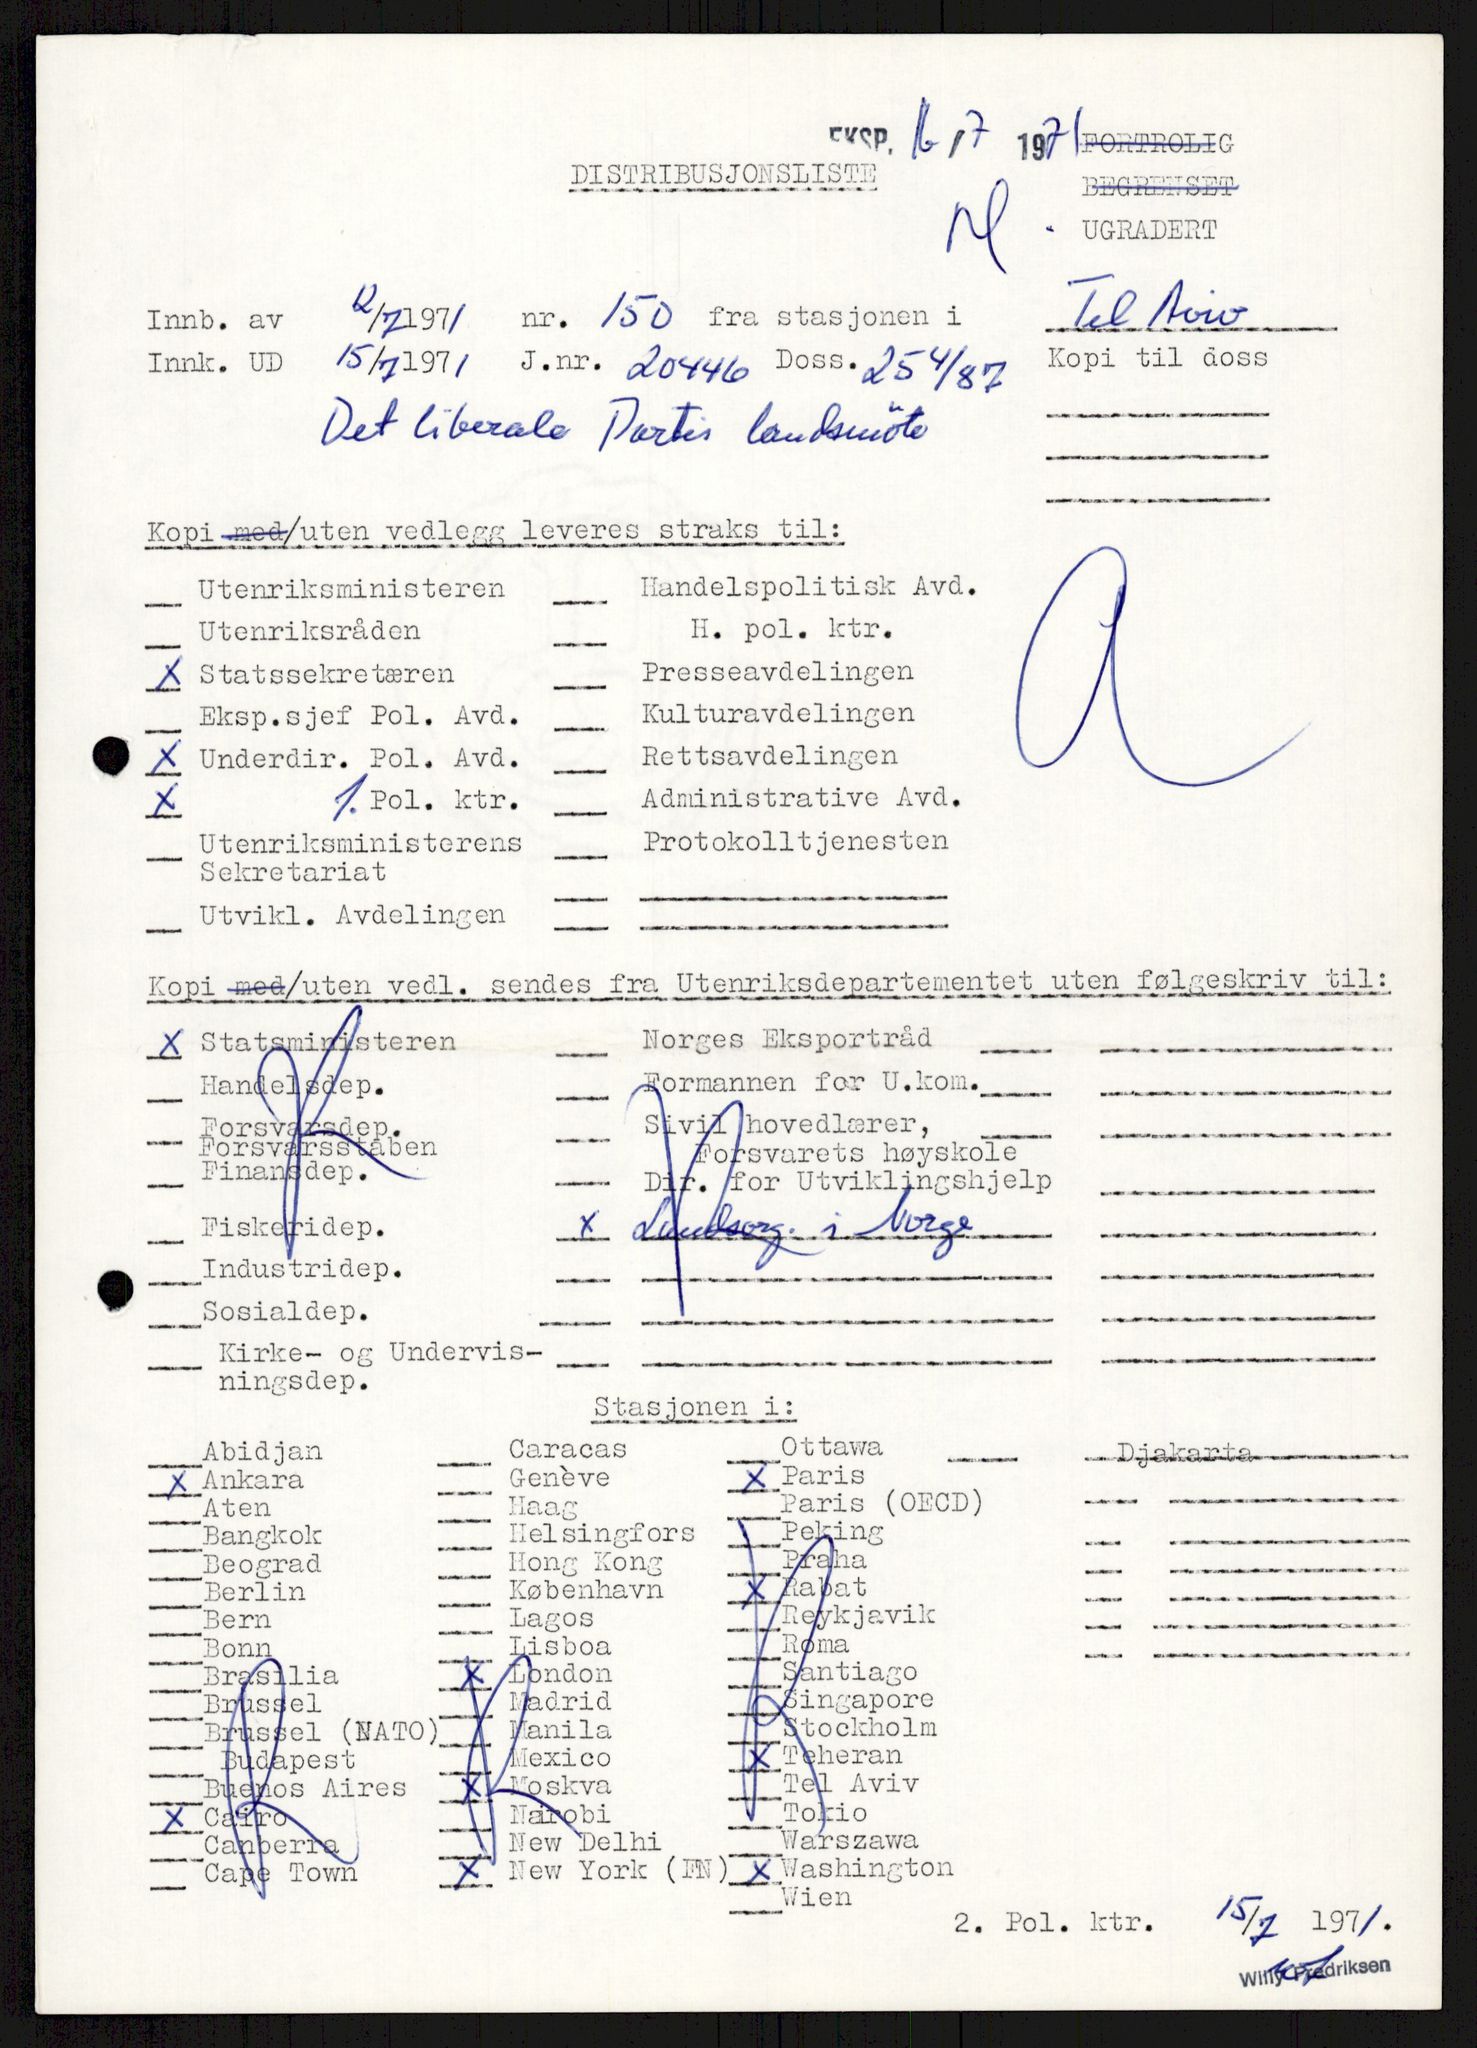 EKSP. 16/7 1971 FORTROLIG
DISTRIBUSJONSLISTE
BEGRENSET
UGRADERT
Innb. av 12/7 1971 nr. 150 fra stasjonen i Tel Aviv
Innk. UD 15/7 1971 J.nr. 20446 Doss. 254/87 Kopi til doss
Det liberale Partis landsmöte
Kopi med/uten vedlegg leveres straks til:
Utenriksministeren Handelspolitisk Avd.
Utenriksråden H. pol. ktr.
X Statssekretæren Presseavdelingen
Eksp.sjef Pol. Avd. Kulturavdelingen
X Underdir. Pol. Avd. Rettsavdelingen
X 1. Pol. ktr. Administrative Avd.
Utenriksministerens Protokolltjenesten
Sekretariat
Utvikl. Avdelingen
A
Kopi med/uten vedl. sendes fra Utenriksdepartementet uten følgeskriv til:
X Statsministeren Norges Eksportråd
Handelsdep. Formannen for U.kom.
Forsvarsdep. Sivil hovedlærer,
Forsvarsstaben Forsvarets høyskole
Finansdep. Dir. for Utviklingshjelp
Fiskeridep. x Landsorg. i Norge
Industridep.
Sosialdep.
Kirke- og Undervis-
ningsdep.
Stasjonen i:
Abidjan Caracas Ottawa Djakarta
X Ankara Genève X Paris
Aten Haag Paris (OECD)
Bangkok Helsingfors Peking
Beograd Hong Kong Praha
Berlin København X Rabat
Bern Lagos Reykjavik
Bonn Lisboa Roma
Brasilia X London Santiago
Brussel Madrid Singapore
Brussel (NATO) Manila Stockholm
Budapest Mexico X Teheran
Buenos Aires X Moskva Tel Aviv
X Cairo Narobi Tokio
Canberra New Delhi Warszawa
Cape Town X New York (FN) X Washington
Wien
2. Pol. ktr. 15/7 1971.
Willy Fredriksen